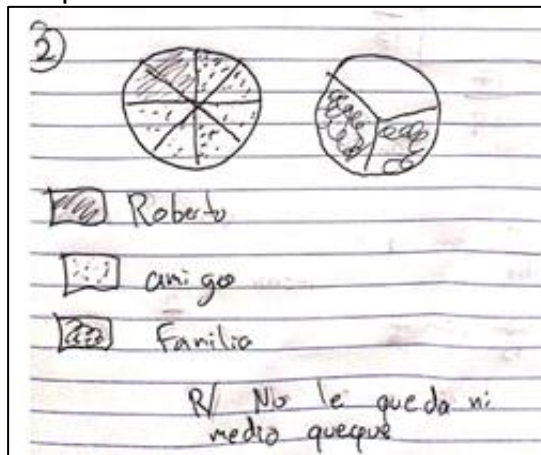 2
Roberto
amigo
Familia
R/ No le queda ni
medio queque